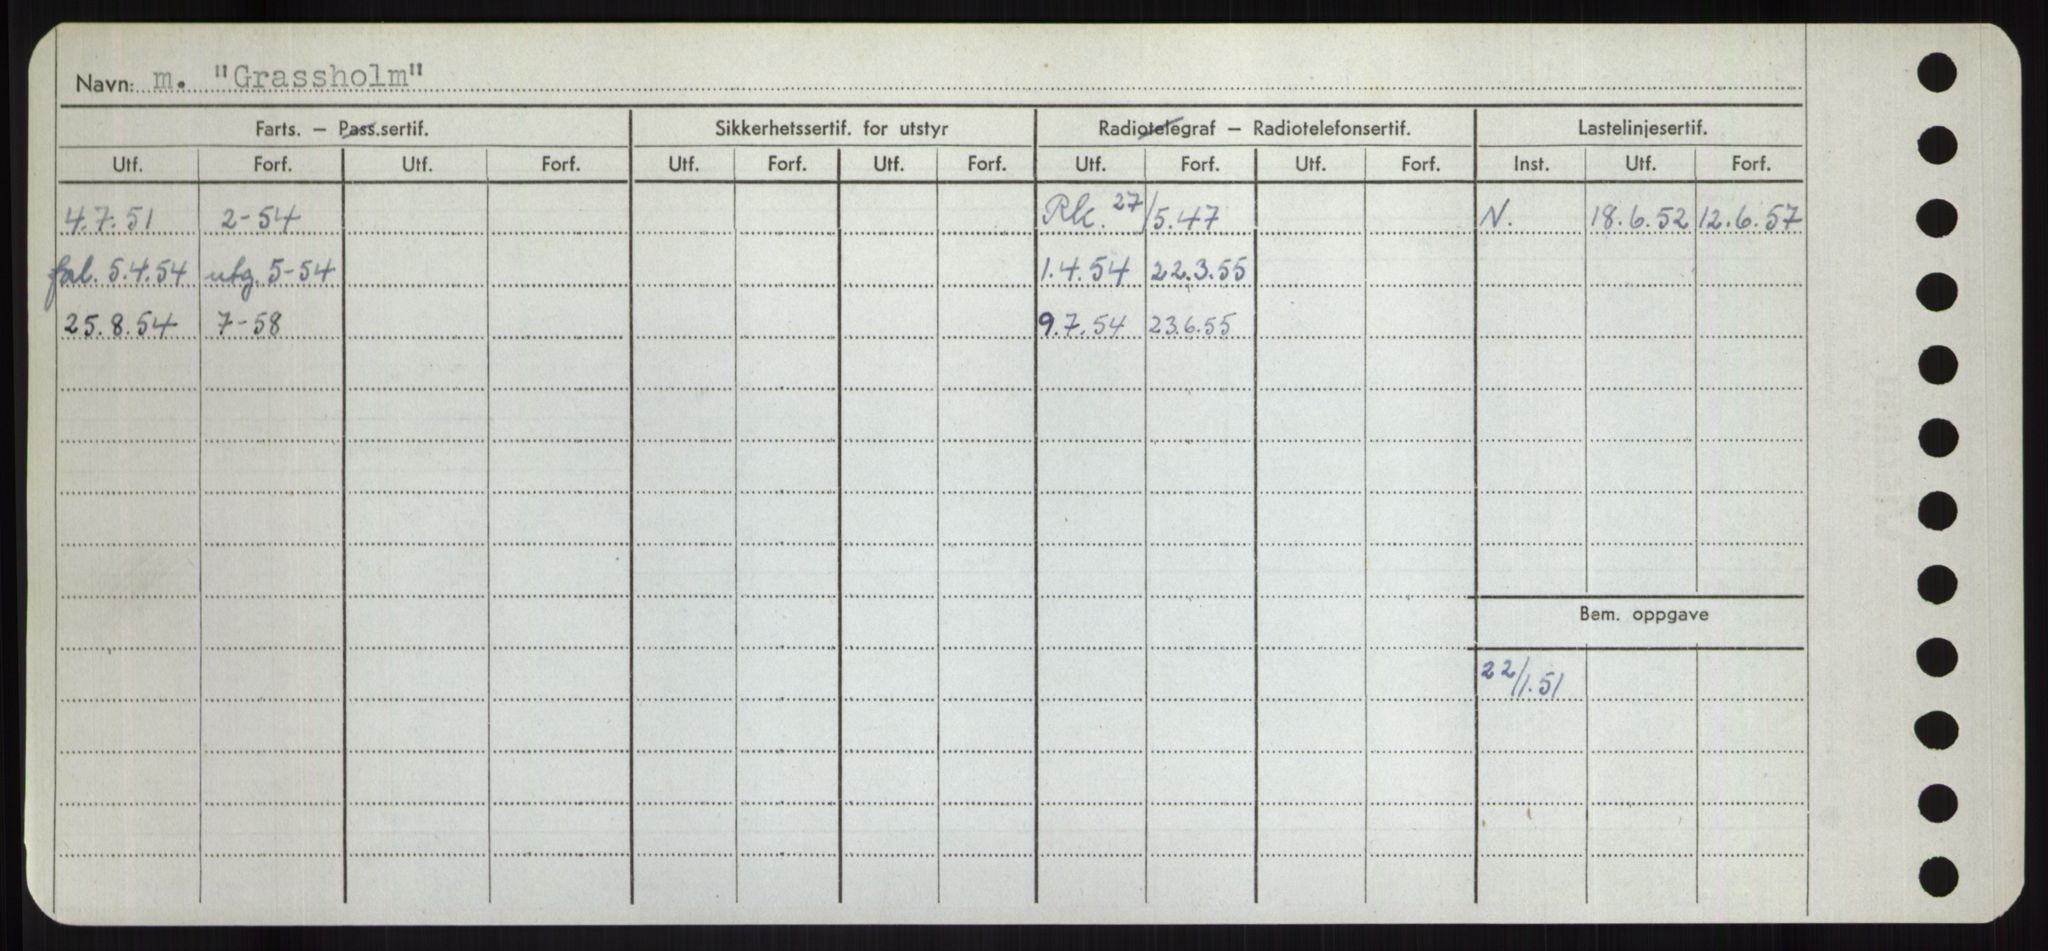 Navn: m. "Grassholm"
Farts. – Pass.sertif. Sikkerhetssertif. for utstyr Radiotelegraf – Radiotelefonsertif. Lastelinjesertif.
Utf. Forf. Utf. Forf. Utf. Forf. Utf. Forf. Utf. Forf. Utf. Forf. Inst. Utf. Forf.
4.7.51 2-54 Rk. 27/5.47 N. 18.6.52 12.6.57
forl. 5.4.54 utg. 5-54 1.4.54 22.3.55
25.8.54 7-58 9.7.54 23.6.55
Bem. oppgave
22/1.51